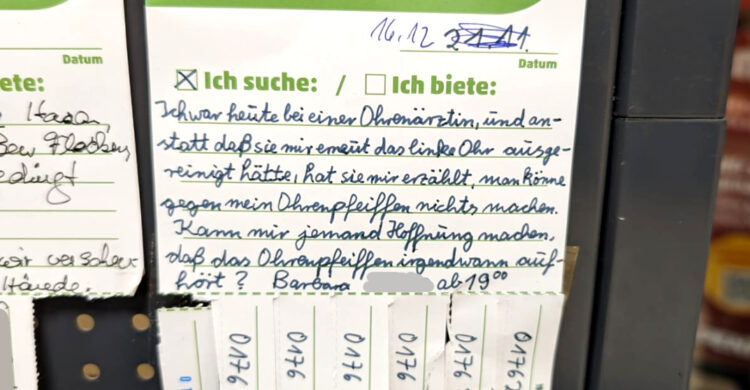 16.12
Datum
Datum
ete:
Ich suche: / Ich biete:
Ich war heute bei einer Ohrenärztin, und an-
statt daß sie mir erneut das linke Ohr ausge-
reinigt hätte, hat sie mir erzählt, man könne
gegen mein Ohrenpfeiffen nichts machen.
Kann mir jemand Hoffnung machen,
daß das Ohrenpfeiffen irgendwann auf-
hört? Barbara ab 19⁰⁰
0176
0176
0176
0176
0176
0176